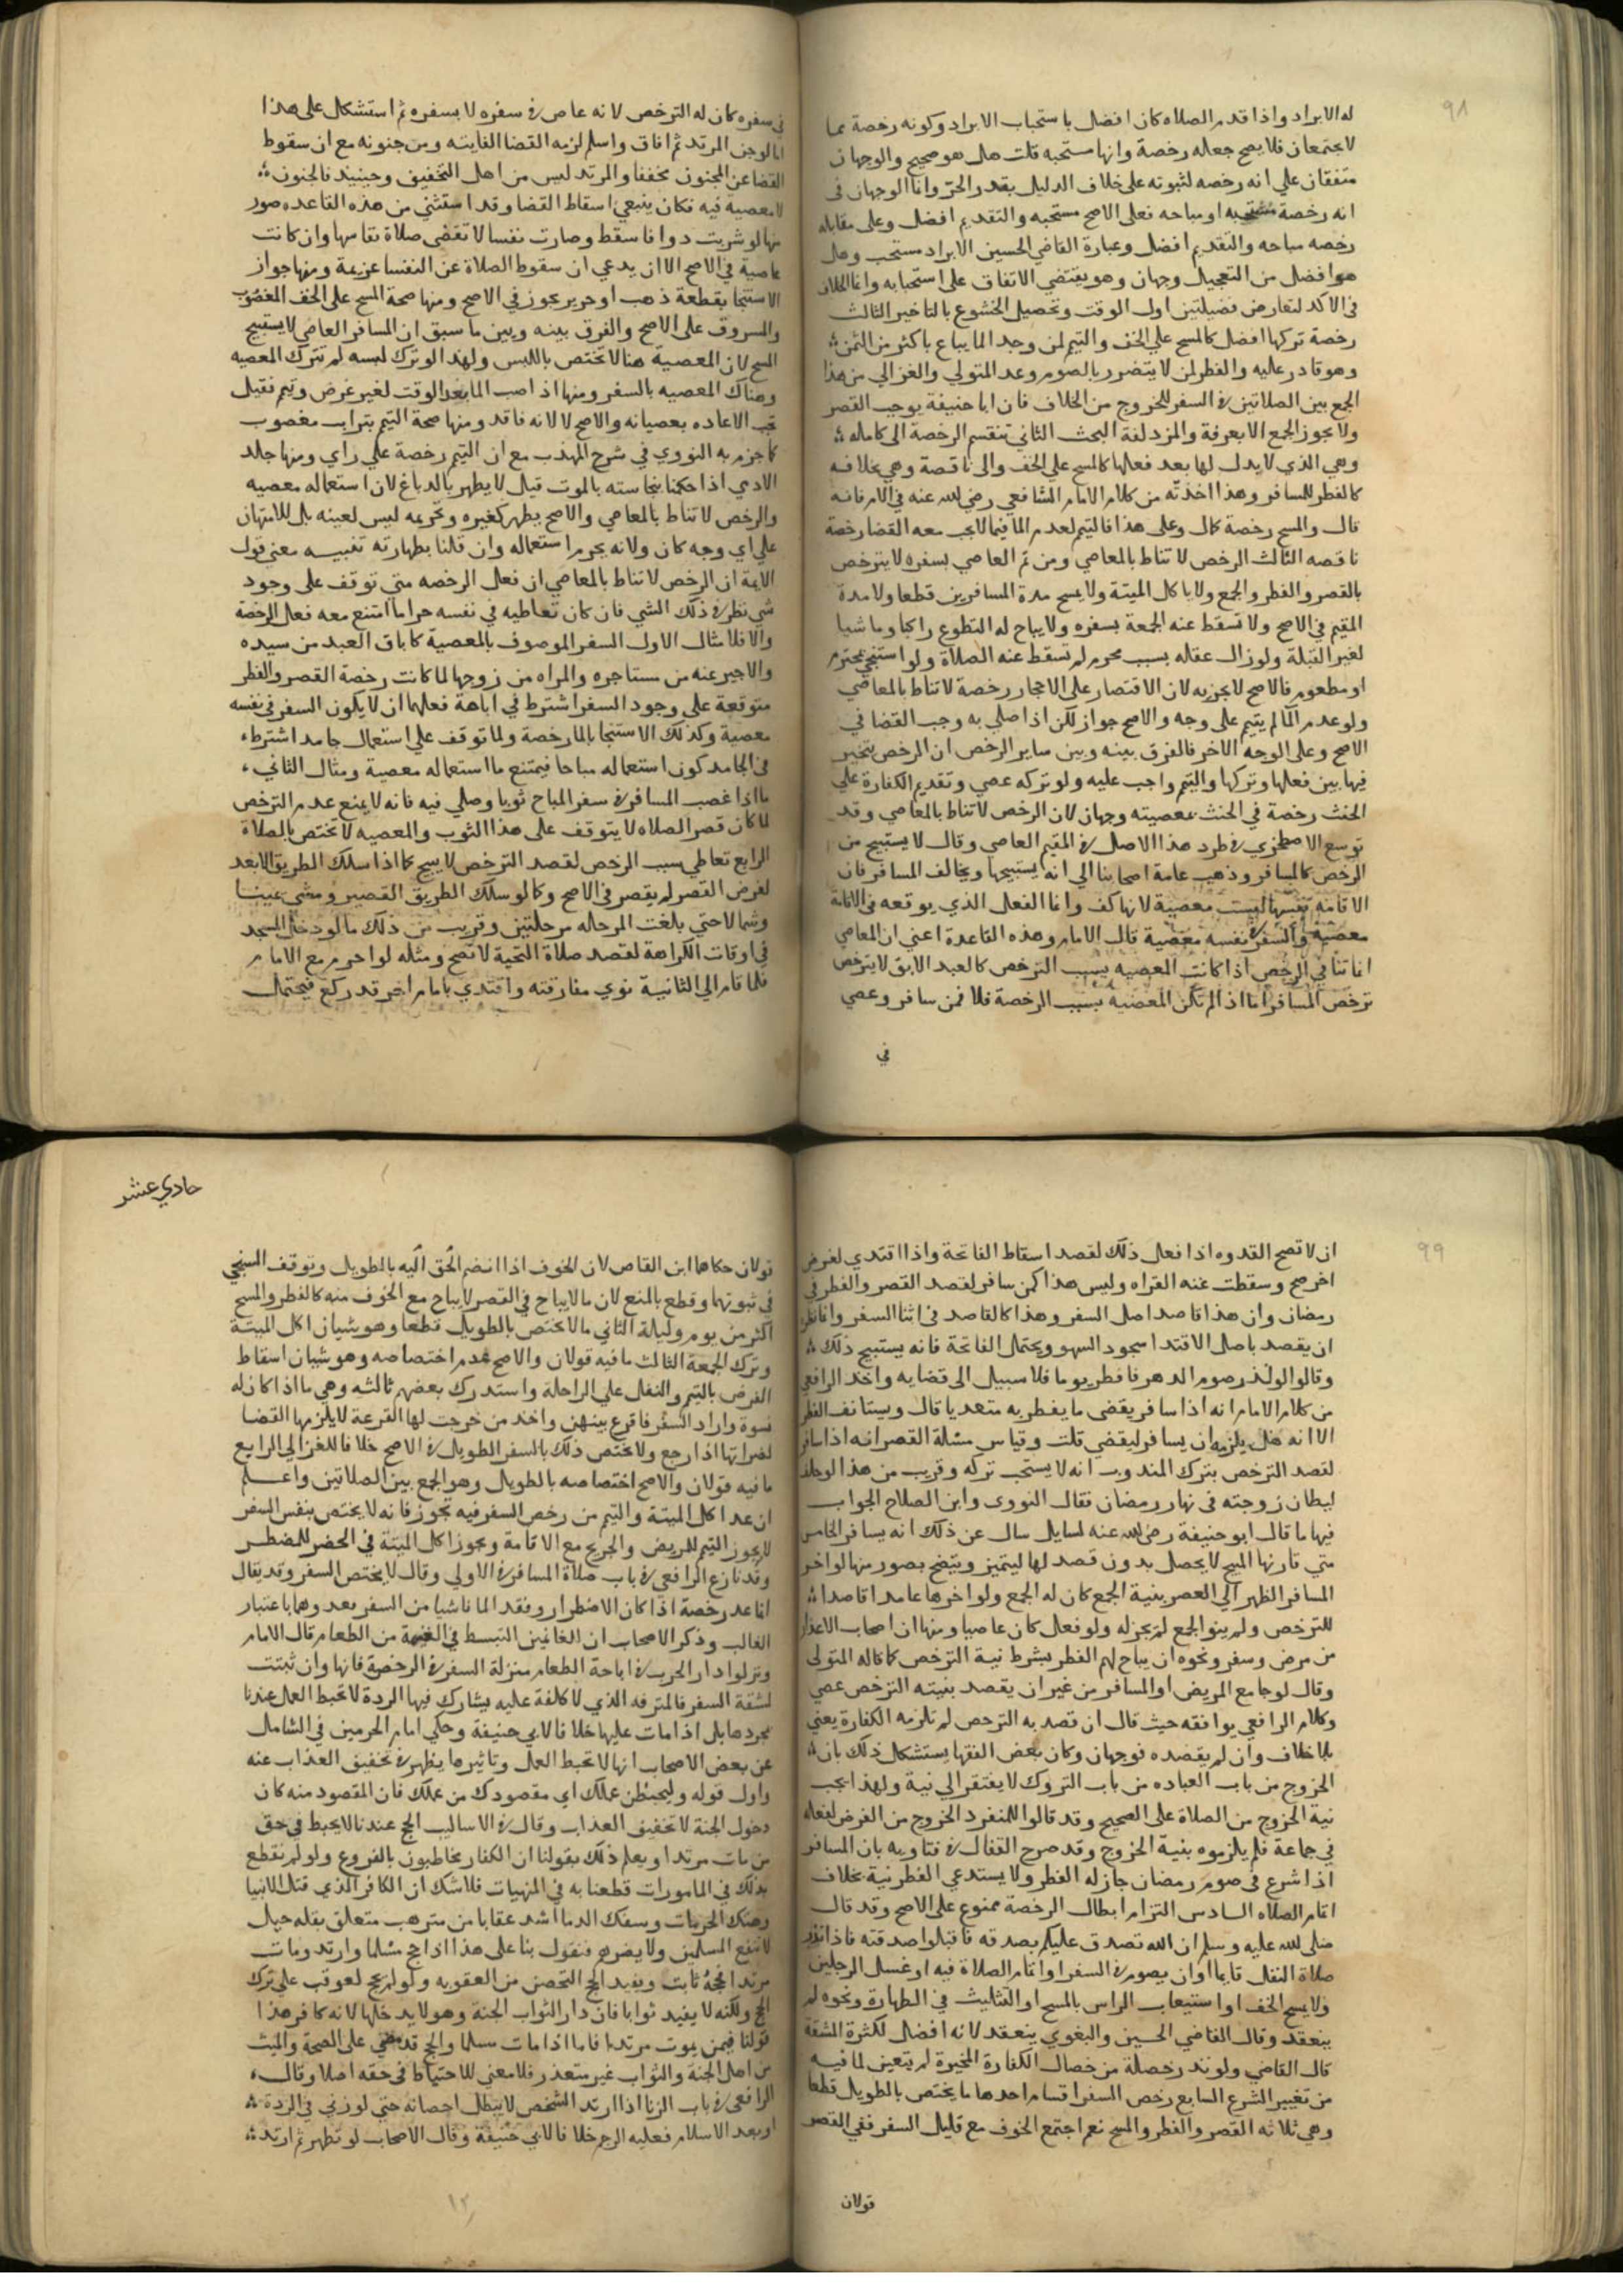 ٩٨
له الابراد واذا قدم الصلاه كان افضل باستحباب الابراد وكونه رخصة مما
لا يجتمعان فلا يصح جعله رخصة وانها مستحبه قلت هل هو صحيح والوجهان
متفقان علي انه رخصه لثبوته على خلاف الدليل بقدر الحر وانما الوجهان فى
انه رخصة مستحبه او مباحه فعلى الاصح مستحبه والتقديم افضل وعلى مقابله
رخصه مباحه والتقديم افضل وعبارة القاضي الحسين الابراد مستحب وهل
هو افضل من التعجيل وجهان وهو يقتضي الاتفاق على استحبابه وانما الخلاف
فى الاكد لتعارض فضيلتين اول الوقت وتحصيل الخشوع بالتاخير الثالث
رخصة تركها افضل كالمسح علي الخف والتيمم لمن وجد الما يباع باكثر من الثمن
وهو قادر عليه والفطر لمن لا يتضرر بالصوم وعد المتولي والغزالي من هذا
الجمع بين الصلاتين في السفر للخروج من الخلاف فان ابا حنيفة يوجب القصر
ولا يجوز الجمع الا بعرفة والمزدلفة البحث الثاني تنقسم الرخصة الى كامله
وهي الذي لا بدل لها بعد فعلها كالمسح على الخف والى ناقصة وهي بخلافه
كالفطر للمسافر وهذا اخذته من كلام الامام الشافعي رضي الله عنه في الام فانه
قال والمسح رخصة كمال وعلى هذا فالتيمم لعدم الما فيما لا يجب معه القضا رخصة
ناقصه الثالث الرخص لا تناط بالمعاصي ومن ثم العاصي بسفره لا يترخص
بالقصر والفطر والجمع ولا باكل الميتة ولا يمسح مدة المسافرين قطعا ولا مدة
المقيم في الاصح ولا تسقط عنه الجمعة بسفره ولا يباح له التطوع راكبا وماشيا
لغير القبلة ولو زال عقله بسبب محرم لم تسقط عنه الصلاة ولو استنجي بمحترم
او مطعوم فالاصح لا يجزيه لان الاقتصار على الاحجار رخصة لا تناط بالمعاصي
ولو عدم الما لم يتيمم على وجه والاصح جواز لكن اذا صلي به وجب القضا في
الاصح وعلى الوجه الاخر فالفرق بينه وبين ساير الرخص ان الرخص يتخير
فيها بين فعلها وتركها والتيمم واجب عليه ولو تركه عصي وتقديم الكفارة علي
الحنث رخصة في الحنث بمعصيته وجهان لان الرخص لا تناط بالمعاصي وقد
توسع الاصطخري في طرد هذا الاصل في المقيم العاصي وقال لا يستبيح من
الرخص كالمسافر وذهب عامة اصحابنا الى انه يستبيحها ويخالف المسافر فان
الاقامة نفسها ليست معصية لانها كف وانما الفعل الذي يوقعه في الاقامة
معصية والسفر نفسه معصية قال الامام وهذه القاعدة اعني ان المعاصي
انما تنافي الرخص اذا كانت المعصيه بسبب الترخص كالعبد الابق لا يترخص
ترخص المسافر اما اذا لم تكن المعصيه بسبب الرخصة فلا فمن سافر وعصي
في
في سفره كان له الترخص لانه عاص في سفره لا بسفره ثم استشكل على هذا
ما لو جن المرتد ثم افاق واسلم لزمه القضا الفايته ومن جنونه مع ان سقوط
القضا عن المجنون مخففا والمرتد ليس من اهل التخفيف وحينيد فالجنون
لا معصيه فيه فكان ينبغي اسقاط القضا وقد استثني من هذه القاعده صور
منها لو شربت دوا فاسقط وصارت نفسا لا تقضى صلاة نفاسها وان كانت
عاصية في الاصح الا ان يدعي ان سقوط الصلاة عن النفسا عزيمة ومنها جواز
الاستنجا بقطعة ذهب او حرير يجوز في الاصح ومنها صحة المسح على الخف المغصوب
والمسروق على الاصح والفرق بينه وبين ما سبق ان المسافر العاصي لا يستبيح
المسح لان المعصية هنا لا تختص باللبس ولهذا لو ترك لبسه لم تترك المعصيه
وهناك المعصيه بالسفر ومنها اذا صب الما بعد الوقت لغير غرض وتيمم فقيل
تجب الاعاده بعصيانه والاصح لا لانه فاقد ومنها صحة التيمم بتراب مغصوب
كما جزم به النووي في شرح المهذب مع ان التيمم رخصة علي راي ومنها جلد
الادمي اذا حكمنا بنجاسته بالموت قيل لا يطهر بالدباغ لان استعماله معصيه
والرخص لا تناط بالمعاصي والاصح يطهر كغيره وتحريمه ليس لعينه بل للامتهان
علي اي وجه كان ولانه يحرم استعماله وان قلنا بطهارته تنبيه معني قول
الايمة ان الرخص لا تناط بالمعاصي ان فعل الرخصه متي توقف على وجود
شي نظر في ذلك الشي فان كان تعاطيه في نفسه حراما امتنع معه فعل الرخصة
والا فلا مثال الاول السفر الموصوف بالمعصية كاباق العبد من سيده
والاجير عنه من مستاجره والمراه من زوجها لما كانت رخصة القصر والفطر
متوقعة على وجود السفر اشترط في اباهة فعلهما ان لا يكون السفر في نفسه
معصية وكذلك الاستنجا بالما رخصة ولما توقف علي استعمال جامد اشترط
في الجامد كون استعماله مباحا فيمتنع ما استعماله معصية ومثال الثاني
ما اذا غصب المسافر في سفر المباح ثوبا وصلي فيه فانه لا يمنع عدم الترخص
لما كان قصر الصلاه لا يتوقف على هذا الثوب والمعصيه لا تختص بالصلاة
الرابع تعاطي سبب الرخص لقصد الترخص لا يبيح كما اذا سلك الطريق الابعد
لغرض القصر لم يقصر في الاصح وكما لو سلك الطريق القصير ومشي يمينا
وشمالا حتي بلغت المرحله مرحلتين وقريب من ذلك ما لو دخل المسجد
في اوقات الكراهة لقصد صلاة التحية لا تصح ومثله لو احرم مع الامام
فلما قام الي الثانية نوي مفارقته واقتدي بامام اخر قد ركع فيحتمل
٩٩
ان لا تصح القدوه اذا فعل ذلك لقصد اسقاط الفاتحة واذا اقتدي لغرض
اخر صح وسقطت عنه القراه وليس هذا كمن سافر لقصد القصر والفطر في
رمضان وان هذا قاصد اصل السفر وهذا كالقاصد فى اثنا السفر وانما نظر
ان يقصد باصل الاقتدا سجود السهو ويحتمل الفاتحة فانه يستبيح ذلك
وقالوا لو نذر صوم الدهر فافطر يوما فلا سبيل الى قضايه واخذ الرافعي
من كلام الامام انه اذا سافر يقضي ما يفطر به متعديا قال وبيستانف الفطر
الا انه هل يلزمه ان يسافر ليقضي قلت وقياس مسئلة القصر انه اذا سافر
لقصد الترخص بترك المندوب انه لا يستحب تركه وقريب من هذا
ليطان زوجته فى نهار رمضان فقال النووى وابن الصلاح الجواب
فيها ما قال ابو حنيفة رضي الله عنه لسايل سال عن ذلك انه يسافر الخامس
متي قارنها المبيح لا يحصل بدون قصد لها ليتميز ويتضح بصور منها لو اخر
المسافر الظهر الي العصر بنية الجمع كان له الجمع ولو اخرها عامدا قاصدا
للترخص ولم ينو الجمع لم يجز له ولو فعل كان عاصيا ومنها ان اصحاب الاعذار
من مرض وسفر ونحوه ان يباح لهم الفطر بشرط نية الترخص كما قاله المتولى
وقال لو جامع المريض او المسافر من غير ان يقصد بنيته الترخص عصي
وكلام الرافعي يوافقه حيث قال ان قصد به الترحص لم تلزمه الكفارة يعني
بلا خلاف وان لم يقصده فوجهان وكان بعض الفقها يستشكل ذلك بان
الخروج من باب العباده من باب التروك لا يفتقر الي نية ولهذا لا يجب
نية الخروج من الصلاة على الصحيح وقد قالوا للمنفرد الخروج من الفرض لفعله
في جماعة فلم يلزموه بنية الخروج وقد صرح القفال في فتاويه بان المسافر
اذا شرع فى صوم رمضان جاز له الفطر ولا يستدعي الفطر نية بخلاف
اتمام الصلاه السادس التزام ابطال الرخصة ممنوع على الاصح وقد قال
صلى الله عليه وسلم ان الله تصدق عليكم بصدقه فاقبلوا صدقته فاذا نذر
صلاة النفل قايما او ان يصوم في السفر او اتمام الصلاة فيه او غسل الرجلين
ولا يمسح الخف او استيعاب الراس بالمسح او التثليث في الطهارة ونحوه لم
ينعقد وقال القاضي الحسين والبغوي ينعقد لانه افضل لكثرة المشقة
قال القاضي ولو نذر خصلة من خصال الكفارة المخيرة لم يتعين لما فيه
من تغيير الشرع السابع رخص السفر اقسام احدها ما يختص بالطويل قطعا
وهي ثلاثه القصر والفطر والمسح نعم اجتمع الخوف مع قليل السفر ففي القصر
قولان
حادي عشر
قولان حكاهما ابن القاص لان الخوف اذا انضم الحق اليه بالطويل وتوقف السنجي
في ثبوتهما وقطع بالمنع لان ما لا يباح في القصر لا يباح مع الخوف منه كالفطر والمسح
اكثر من يوم وليلة الثاني ما لا يختص بالطويل قطعا وهو شيان اكل الميتة
وترك الجمعة الثالث ما فيه قولان والاصح عدم اختصاصه وهو شيان اسقاط
الفرض بالتيمم والنفل علي الراحلة واستدرك بعضهم ثالثه وهي ما اذا كان له
نسوة واراد السفر فاقرع بينهن واخذ من خرجت لها القرعة لا يلزمها القضا
لضراتها اذا رجع ولا يختص ذلك بالسفر الطويل في الاصح خلافا للغزالي الرابع
ما فيه قولان والاصح اختصاصه بالطويل وهو الجمع بين الصلاتين واعلم
ان عد اكل الميتة والتيمم من رخص السفر فيه تجوز فانه لا يختص بنفس السفر
لا يجوز التيمم للمريض والجريح مع الاقامة ويجوز اكل الميتة في الحضر للمضطر
وقد نازع الرافعي في باب صلاة المسافر في الاولي وقال لا يختص السفر وقد يقال
انما عد رخصة اذا كان الاضطرار وفقد الما ناشيا من السفر بعد وهما باعتبار
الغالب وذكر الاصحاب ان الغانمين التبسط في الغنيمة من الطعام قال الامام
ونزلوا دار الحرب في اباحة الطعام منزلة السفر في الرخصة فانها وان ثبتت
لمشقة السفر فالمترفه الذي لا كلفة عليه يشارك فيها الردة لا تحبط العمل عندنا
بمجردها بل اذا مات عليها خلافا لابي حنيفة وحكي امام الحرمين في الشامل
عن بعض الاصحاب انها لا تحبط العمل وتاثيرها يظهر في تخفيف العذاب عنه
واول قوله وليحبطن عملك اي مقصودك من عملك فان المقصود منه كان
دخول الجنة لا تخفيف العذاب وقال في الاساليب الحج عندنا لا يحبط في حق
من مات مرتدا ويعلم ذلك بقولنا ان الكفار يخاطبون بالفروع ولو لم نقطع
بذلك في المامورات قطعنا به في المنهيات فلا شك ان الكافر الذي قتل الانبيا
وهتك الحرمات وسفك الدما اشد عقابا من مترهب متعلق بقله جبل
لا ينفع المسلمين ولا يضرهم فنقول بنا على هذا اذا حج مسلما وارتد ومات
مرتدا فحجه ثابت ويفيد الحج التحصن من العقوبه ولو لم يحج لعوقب علي ترك
الحج ولكنه لا يفيد ثوابا فان دار الثواب الجنة وهو لا يدخلها لانه كافر هذا
قولنا فيمن يموت مرتدا فاما اذا مات مسلما والحج قد مضي على الصحة والميت
من اهل الجنة والثواب غير متعذر فلا معني للاحتياط في حقه اصلا وقال
الرافعي في باب الزنا اذا ارتد الشخص لا يبطل احصانه حتي لو زني في الردة
او بعد الاسلام فعليه الرجم خلافا لابي حنيفة وقال الاصحاب لو تطهر ثم ارتد
١٢